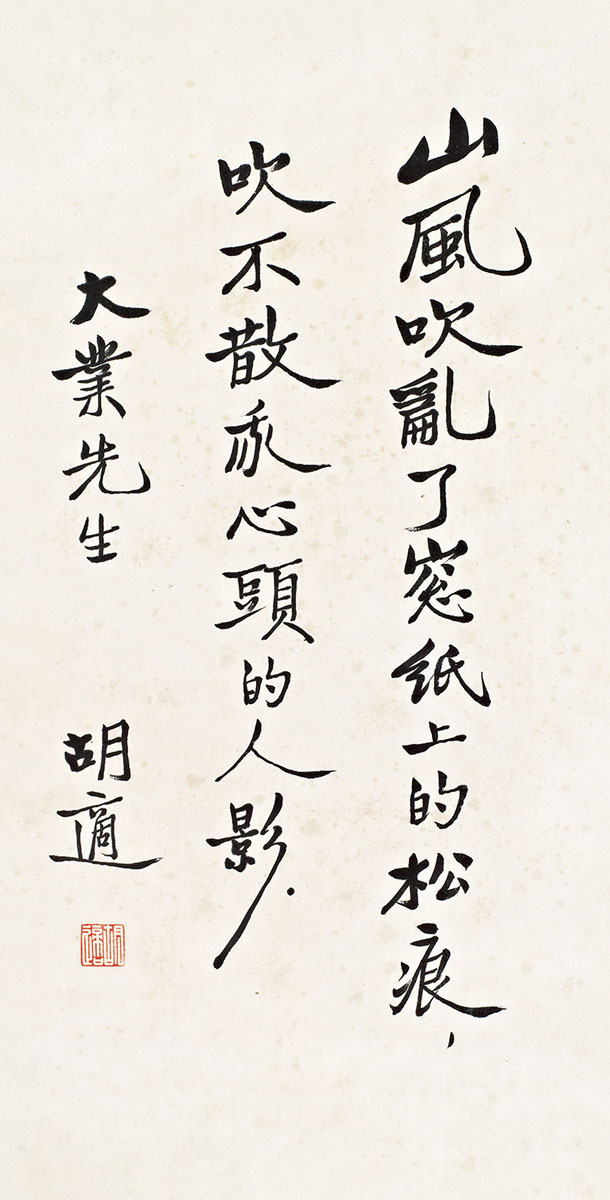 山風吹亂了窻纸上的松痕，
吹不散我心頭的人影．
大業先生
胡適
胡適